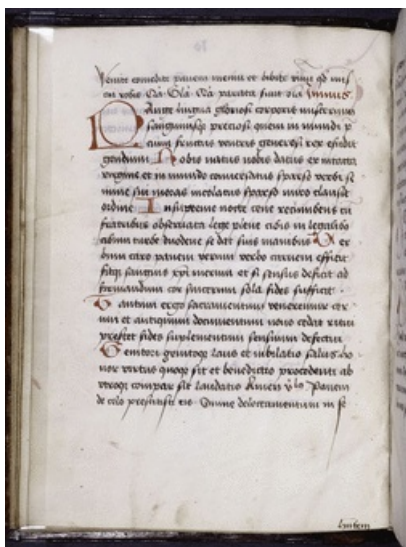 Venite comedite panem meum et bibite vinu qd mis
cui vobis Qa Gla Qa parata sunt oia Ymnus
Pange lingua gloriosi corporis misterium
sanguinisqz preciosi quem in mundi p
cium fructus ventris generosi rex effudit
gentium Nobis natus nobis datus ex intacta
virgine et in mundo conversatus sparso verbi se
mine sui moras incolatus miro clausit
ordine In supreme nocte cene recumbens cu
fratribus observata lege plene cibis in legalibo
cibum turbe duodene se dat suis manibus Ver
bum caro panem verum verbo carnem efficit
fitqz sanguis xpi merum et si sensus deficit ad
firmandum cor sincerum sola fides sufficit
Tantum ergo sacramentum veneremur cer
nui et antiquum documentum novo cedat ritui
prestet fides suplementum sensuum defectui
Genitori genitoqz laus et iubilatio salus ho
nor virtus quoqz sit et benedictio procedenti ab
utroqz compar sit laudatio Amen Panem
de celo prestitisti eis Omne delectamentum in se